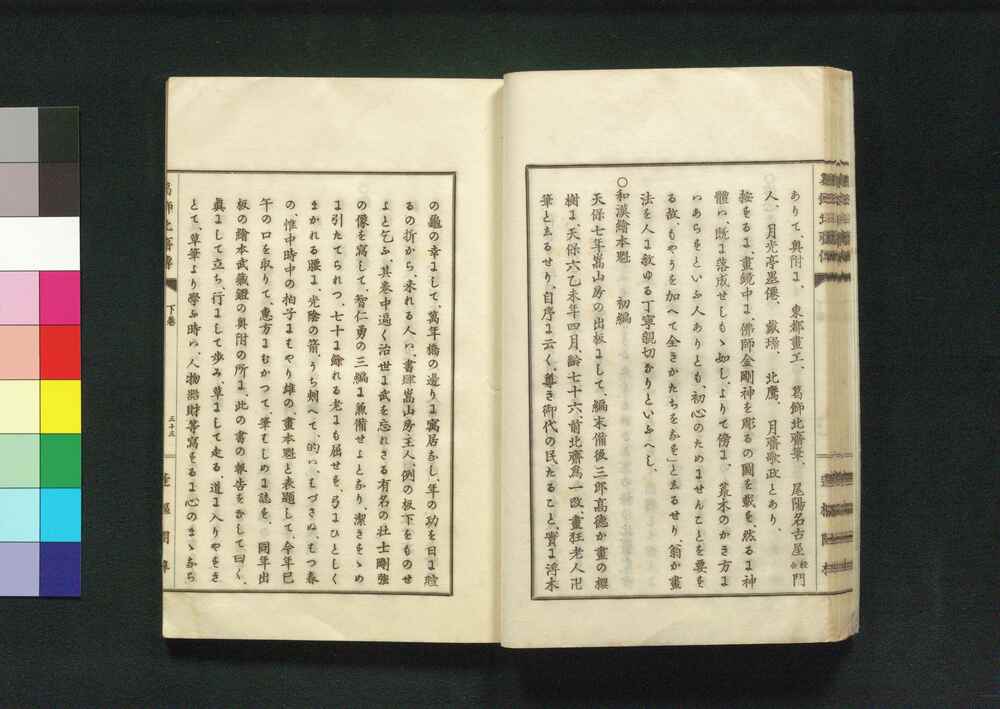 ありて、奥附に、東都畫工、葛飾北齋筆、尾陽名古屋校合門
人、月光亭墨僊、戴璪、北鷹、月齋歌政とあり、
按をるに畫鏡中に、佛師金剛神を彫るの圖を載を、然るに神
體ハ、既に落成せしもゝ如し、よりて傍に、荒木のかき方に
ハあらをといふ人ありとも、初心のためにせんことを要を
る故にもやうを加へて全きかたちをなを」と云るせり、翁が畫
法を人に敎ゆる丁寧親切なりといふへし、
○和漢繪本魁 初編
天保七年嵩山房の出板にして、編末備後三郎高德か畫の櫻
樹に、天保六乙未年四月、齡七十六、前北齋爲一改、畫狂老人卍
筆と云るせり、自序に云く、尊き御代の民たること、實に浮木
の龜の幸にして、萬年橋の邊りに寓居なし、年の功を日に經
るの折から、來れる人ハ、書肆嵩山房主人、例の板下をものせ
よと乞ふ、其巻中遍く治世に武を忘れさる有名の壯士剛強
の像を寫して、智仁勇の三編に兼備せよとなり、潔きをゝめ
に引たてられつ、七十に餘れる老にも屈せを、弓にひとしく
まかれる腰に、光陰の箭、うち番へて、的ハ、もづさぬ、もつ春
の、惟中時中の柏子にもやり雄の、畫本魁と表題して、今年巳
午の口を取りて、惠方にむかつて、筆もしめに誌を、同年出
板の繪本武藏鐙の奥附の所に、此の書の報告をなして曰く、
眞にして立ち、行にして步み、草にして走る、道に入りやをき
とて、草筆より學ふ時ハ、人物器財等寫をるに心のまゝなら
葛飾北齋傳 下巻 三十三